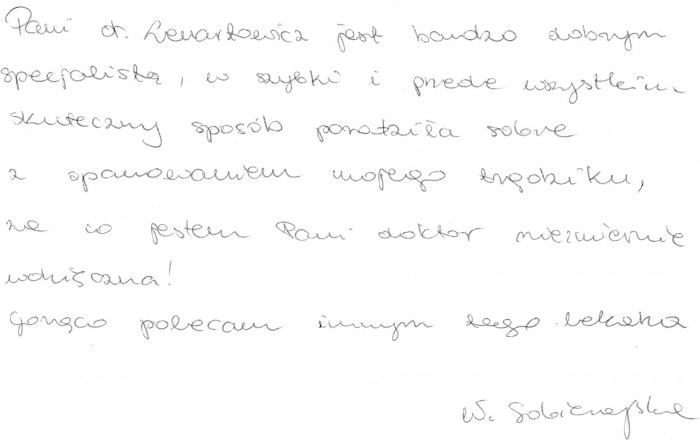 Pani dr. Lewartowicz jest bardzo dobrym
specjalistą, w szybki i przede wszystkim
skuteczny sposób poradziła sobie
z opanowaniem mojego trądziku,
za co jestem Pani doktor niezmiernie
wdzięczna!
Gorąco polecam innym tego lekarza
W.